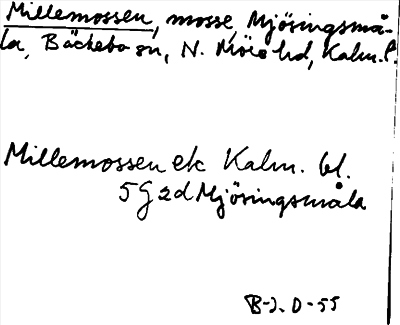 Millemossen, mosse, Mjösingsmå-
la, Bäckebo sn, N. Möre hd, Kalm. l.
Millemossen ek Kalm. bl.
5 G 2 d Mjösingsmåla
B-J. O -55